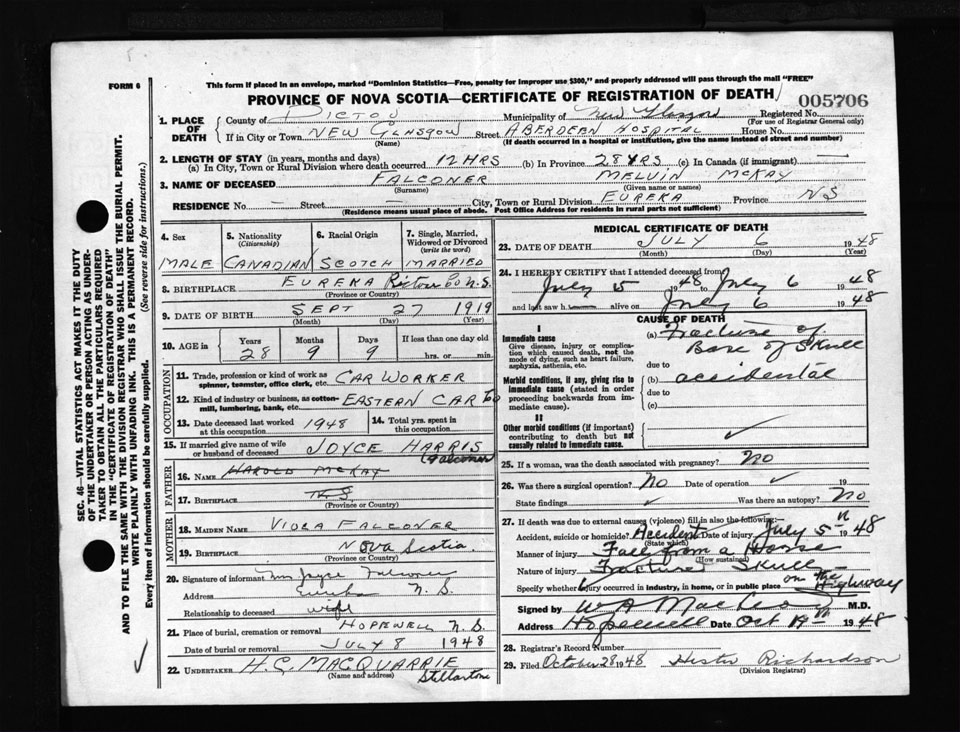 FORM 6
This form if placed in an envelope, marked "Dominion Statistics—Free, penalty for improper use $300," and properly addressed will pass through the mail "FREE"
PROVINCE OF NOVA SCOTIA—CERTIFICATE OF REGISTRATION OF DEATH
005706
1. PLACE OF DEATH
County of PICTOU Municipality of New Glasgow Registered No.
(For use of Registrar General only)
If in City or Town NEW GLASGOW Street ABERDEEN HOSPITAL House No.
(Name) (If death occurred in a hospital or institution, give the name instead of street and number)
2. LENGTH OF STAY (in years, months and days)
(a) In City, Town or Rural Division where death occurred 12 HRS (b) In Province 28 YRS (c) In Canada (if immigrant) —
3. NAME OF DECEASED FALCONER MELVIN McKAY
(Surname) (Given name or names)
RESIDENCE No. — Street — City, Town or Rural Division EUREKA Province NS
(Residence means usual place of abode. Post Office Address for residents in rural parts not sufficient)
4. Sex MALE
5. Nationality (Citizenship) CANADIAN
6. Racial Origin SCOTCH
7. Single, Married, Widowed or Divorced (write the word) MARRIED
8. BIRTHPLACE EUREKA Pictou Co N.S.
(Province or Country)
9. DATE OF BIRTH SEPT 27 1919
(Month) (Day) (Year)
10. AGE in Years 28 Months 9 Days 9 If less than one day old hrs. or min.
OCCUPATION
11. Trade, profession or kind of work as spinner, teamster, office clerk, etc. CAR WORKER
12. Kind of industry or business, as cotton-mill, lumbering, bank, etc. EASTERN CAR CO
13. Date deceased last worked at this occupation 1948
14. Total yrs. spent in this occupation
15. If married give name of wife or husband of deceased JOYCE HARRIS
(Falconer)
FATHER
16. Name HAROLD McKAY
17. Birthplace N.S.
(Province or Country)
MOTHER
18. MAIDEN NAME VIOLA FALCONER
19. BIRTHPLACE NOVA Scotia.
(Province or Country)
20. Signature of informant Mrs Joyce Falconer
Address Eureka N.S.
Relationship to deceased wife
21. Place of burial, cremation or removal HOPEWELL N.S.
Date of burial or removal JULY 8 1948
22. UNDERTAKER H.C. MACQUARRIE
(Name and address) Stellarton
MEDICAL CERTIFICATE OF DEATH
23. DATE OF DEATH JULY 6 1948
(Month) (Day) (Year)
24. I HEREBY CERTIFY that I attended deceased from
July 5 1948 to July 6 1948
and last saw h alive on July 6 1948
CAUSE OF DEATH
I
Immediate cause
Give disease, injury or complication which caused death, not the mode of dying, such as heart failure, asphyxia, asthenia, etc.
(a) Fracture of Base of Skull
due to
Morbid conditions, if any, giving rise to immediate cause (stated in order proceeding backwards from immediate cause).
(b) accidental
due to
(c)
II
Other morbid conditions (if important) contributing to death but not causally related to immediate cause.
✓
25. If a woman, was the death associated with pregnancy? NO
26. Was there a surgical operation? No Date of operation ✓ 19
State findings ✓ Was there an autopsy? No
27. If death was due to external causes (violence) fill in also the following:—
Accident, suicide or homicide? Accident Date of injury July 5th 1948
(State which)
Manner of injury Fall from a Horse
(How sustained)
Nature of injury Fracture Skull
Specify whether injury occurred in industry, in home, or in public place on the Highway
Signed by M.D.
Address Hopewell Date Oct 19th 1948
28. Registrar's Record Number
29. Filed October 28 1948 Hester Richardson
(Division Registrar)
SEC. 46—VITAL STATISTICS ACT MAKES IT THE DUTY
OF THE UNDERTAKER OR PERSON ACTING AS UNDERTAKER TO OBTAIN ALL THE PARTICULARS REQUIRED
IN THE "CERTIFICATE OF REGISTRATION OF DEATH"
AND TO FILE THE SAME WITH THE DIVISION REGISTRAR WHO SHALL ISSUE THE BURIAL PERMIT.
WRITE PLAINLY WITH UNFADING INK. THIS IS A PERMANENT RECORD.
Every item of information should be carefully supplied. (See reverse side for instructions.)
✓